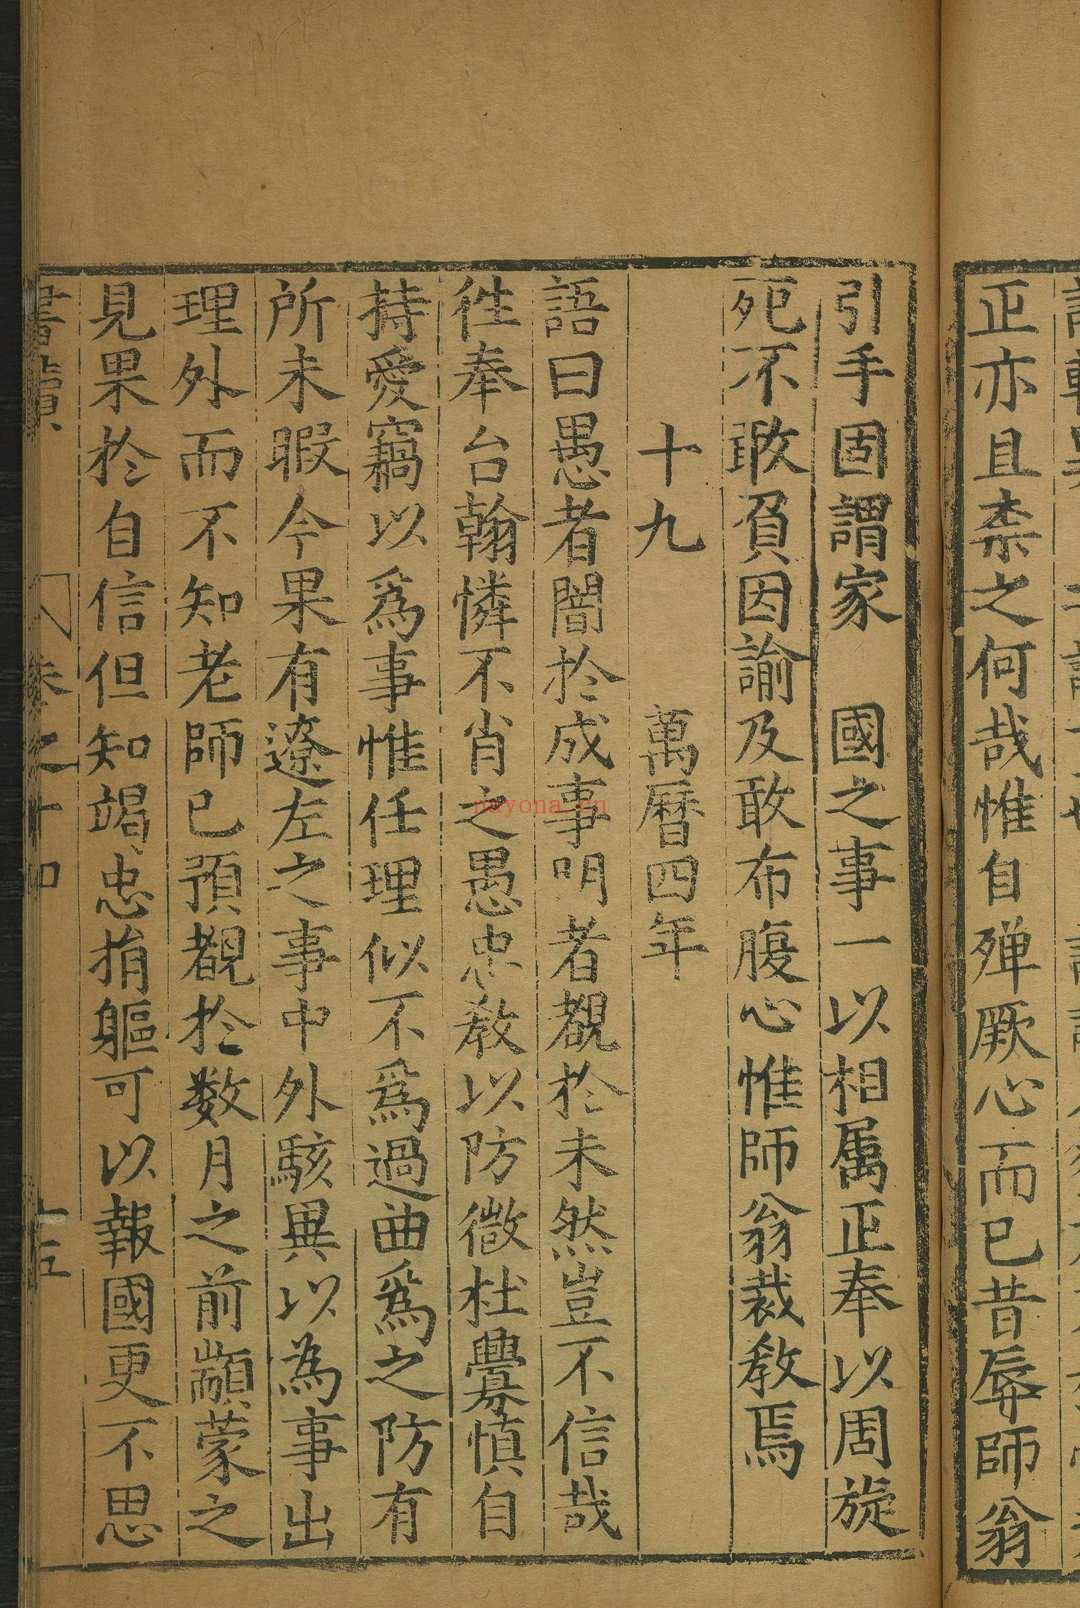 正亦且柰之何哉惟自殫厥心而已昔辱師翁
引手固謂家　國之事一以相属正奉以周旋
死不敢負因諭及敢布腹心惟師翁裁教焉
十九　萬曆四年
語曰愚者闇於成事明者覩於未然豈不信哉
徃奉台翰憐不肖之愚忠教以防微杜釁慎自
持愛竊以爲事惟任理似不爲過曲爲之防有
所未暇今果有遼左之事中外駭異以為事出
理外而不知老師已預覩於数月之前顓蒙之
見果於自信但知竭忠捐軀可以報國更不思
書牘　卷之十四　十五
nayona.cn